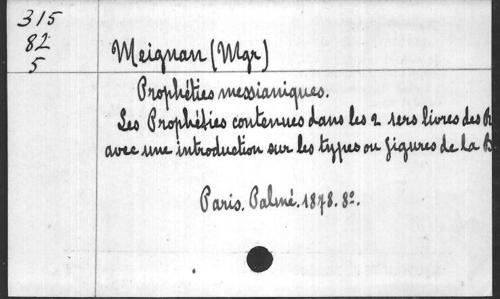 315
82
5
Meignan (Mgr)
Prophéties messianiques.
Les Prophéties contenues dans les 2 1ers livres des R
avec une introduction sur les types ou figures de la B
Paris. Palmé. 1878. 8º.